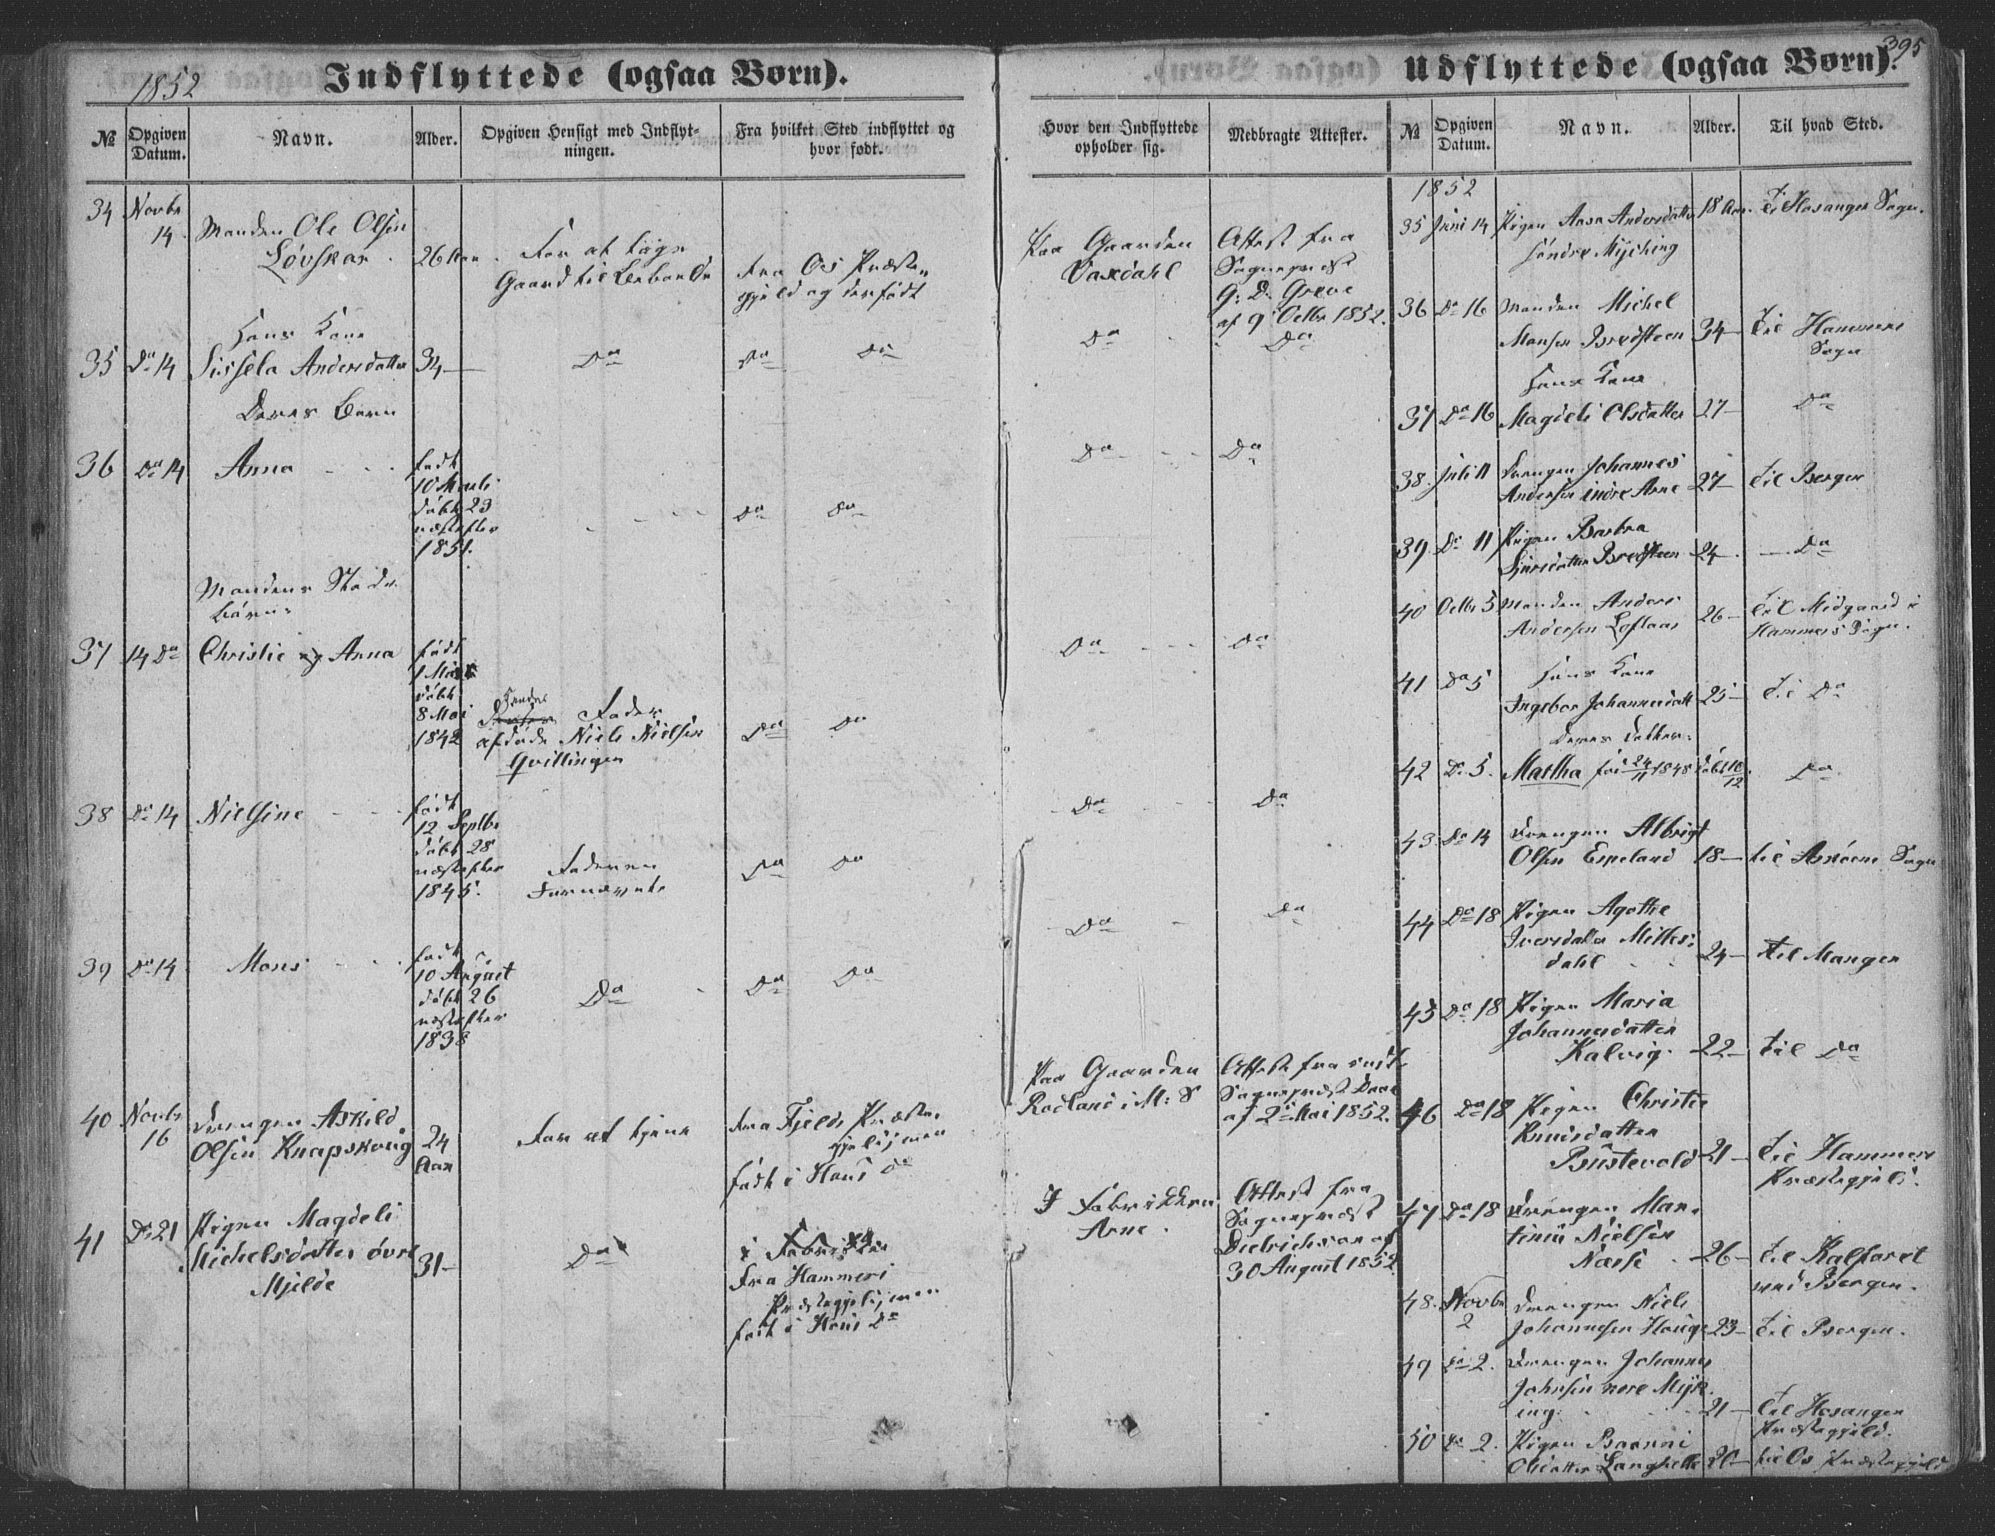 395
1852
Indflyttede (ogsaa Børn).
Udflyttede (ogsaa Børn).
№
Opgiven
Datum.
Navn.
Alder.
Opgiven Hensigt med Indflyt-
ningen.
Fra hvilket Sted indflyttet og
hvor født.
Hvor den Indflyttede
opholder sig.
Medbragte Attester.
34 Novbr
14.
Manden Ole Olsen
Løvskar
26 Aar.
For at tage
Gaard til
Fra Os Præste
gjeld og der født
Paa Gaarden
Vaxdahl
Attest fra
Sognepræst
G: D. Greve
af 9 Octbr 1852.
Hans Kone
35 Do 14 Sissela Andersdatter 34— Do Do Do Do Do
Deres Barn
36 Do 14 Anna
født
10 Marti
døbt 23
næstefter
1851.
Do Do Do Do
Mandens Sted
børn:
37 14 Do Christie og Anna
født
1 Mai
døbt
8 Mai
1842
Fader
afdøde Niels Nielsen
Qvittingen
Do Do Do Do
38 Do 14 Nielsine
født
12 Septbr
døbt 28
næstefter
1845.
Faderen
Fornævnte
Do Do Do Do
39 Do 14 Mons
født
10 August
døbt 26
næstefter
1838
Do Do Do Do Do
40 Novbr
16
Drengen Askild
Olsen Knapskoug
24
Aar
For at tjene
Fra Fjelds Præste
gjeld, men
født i Hous Do
Paa Gaarden
Rødland i M: S
Attest fra
Sognepræst Daae
af 2 Mai 1852.
41 Do 21 Pigen Magdeli
Michelsdatter øvre
Mjelde
31—
Do
i Fabrikken
Fra Hammers
Præstegjeld, men
født i Hous Do
I Fabrikken
Arne.
Attest fra
Sognepræst
Dietrichson af
30 August 1852
№
Opgiven
Datum.
Navn.
Alder.
Til hvad Sted.
1852
35 Juni 14 Pigen Aasa Andersdatter 18 Aar. til Hosanger Sogn.
søndre Myching
36 Do 16 Manden Michel
Monsen Bredsteen 34— til Hammers
Sogn
Hans Kone
37 Do 16 Magdeli Olsdatter 27— Do
38. Juli 11 Drengen Johannes
Andersen indre Arne 27— til Bergen
39. Do 11 Pigen Barbra
Sjursdatter Bredsteen 24— Do
40 Octbr 5 Manden Anders
Andersen Loftaas 26— til Midgaard i
Hammers Sogn.
41 Do 5 Hans Kone
Ingebor Johannesdatt 25— til Do
Deres Datter.
42 Do 5. Martha født 24/11 1848 døbt 10/12. Do
43 Do 14 Drengen Albrigt
Olsen Espeland 18— til Askøens Sogn
44 Do 18 Pigen Agothe
Iversdatter Mittes-
dahl 24— til Manger
45 Do 18 Pigen Maria
Johannesdatter
Kalvig. 22— til Do
46 Do 18 Pigen Christie
Knudsdatter
21— til Hammers
Præstegjeld.
47 Do 18 Drengen Mar-
tinus Nielsen
Næsse 26— til Kalfaret
ved Bergen.
48. Novbr
2 Drengen Niels
Johannesen Houge 23— til Bergen.
49 Do 2. Drengen Johannes
Johnsen nore Myk
ing. 21— til Hosanger
Præstegjeld.
50 Do 2. Pigen
Olsdatter Langhelle 20— til Os Præstegjeld